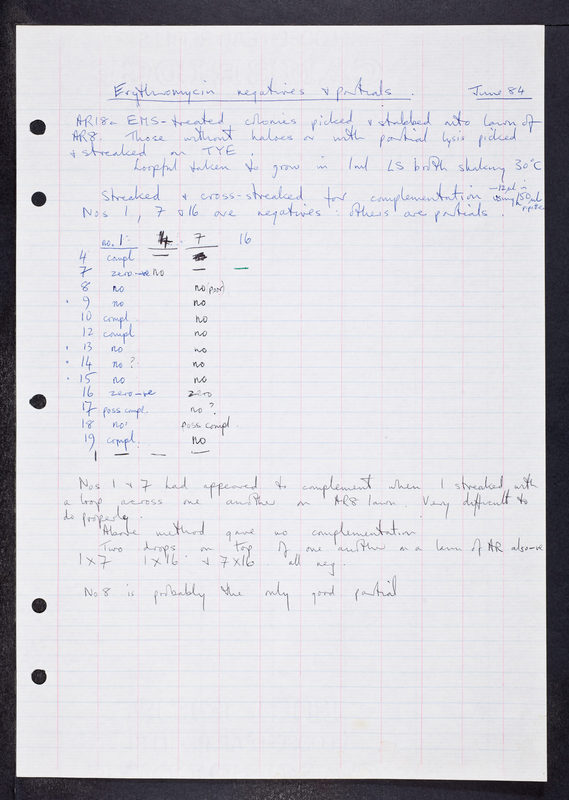 Erythromycin negatives & partials. June 84
AR18a EMS-treated, colonies picked & stabbed into lawn of
AR8. Those without haloes or with partial lysis picked
& streaked on TYE
Loopful taken to grow in 1ml LS broth shaking 30°C
Streaked & cross-streaked for complementation
Nos 1, 7 & 16 are negatives: others are partials.
no. 1: 7 16
4 compl —
7 zero-ve no — —
8 no no (poss)
9 no no
10 compl. no
12 compl no
13 no no
14 no? no
15 no no
16 zero-ve zero
17 poss compl. no?
18 no! poss compl.
19 compl. no
1 — — —
Nos 1 & 7 had appeared to complement when I streaked with
a loop across one another on AR8 lawn. Very difficult to
do properly.
Above method gave no complementation
Two drops on top of one another on a lawn of AR also-ve
1x7 1x16 & 7x16 all neg.
No 8 is probably the only good partial